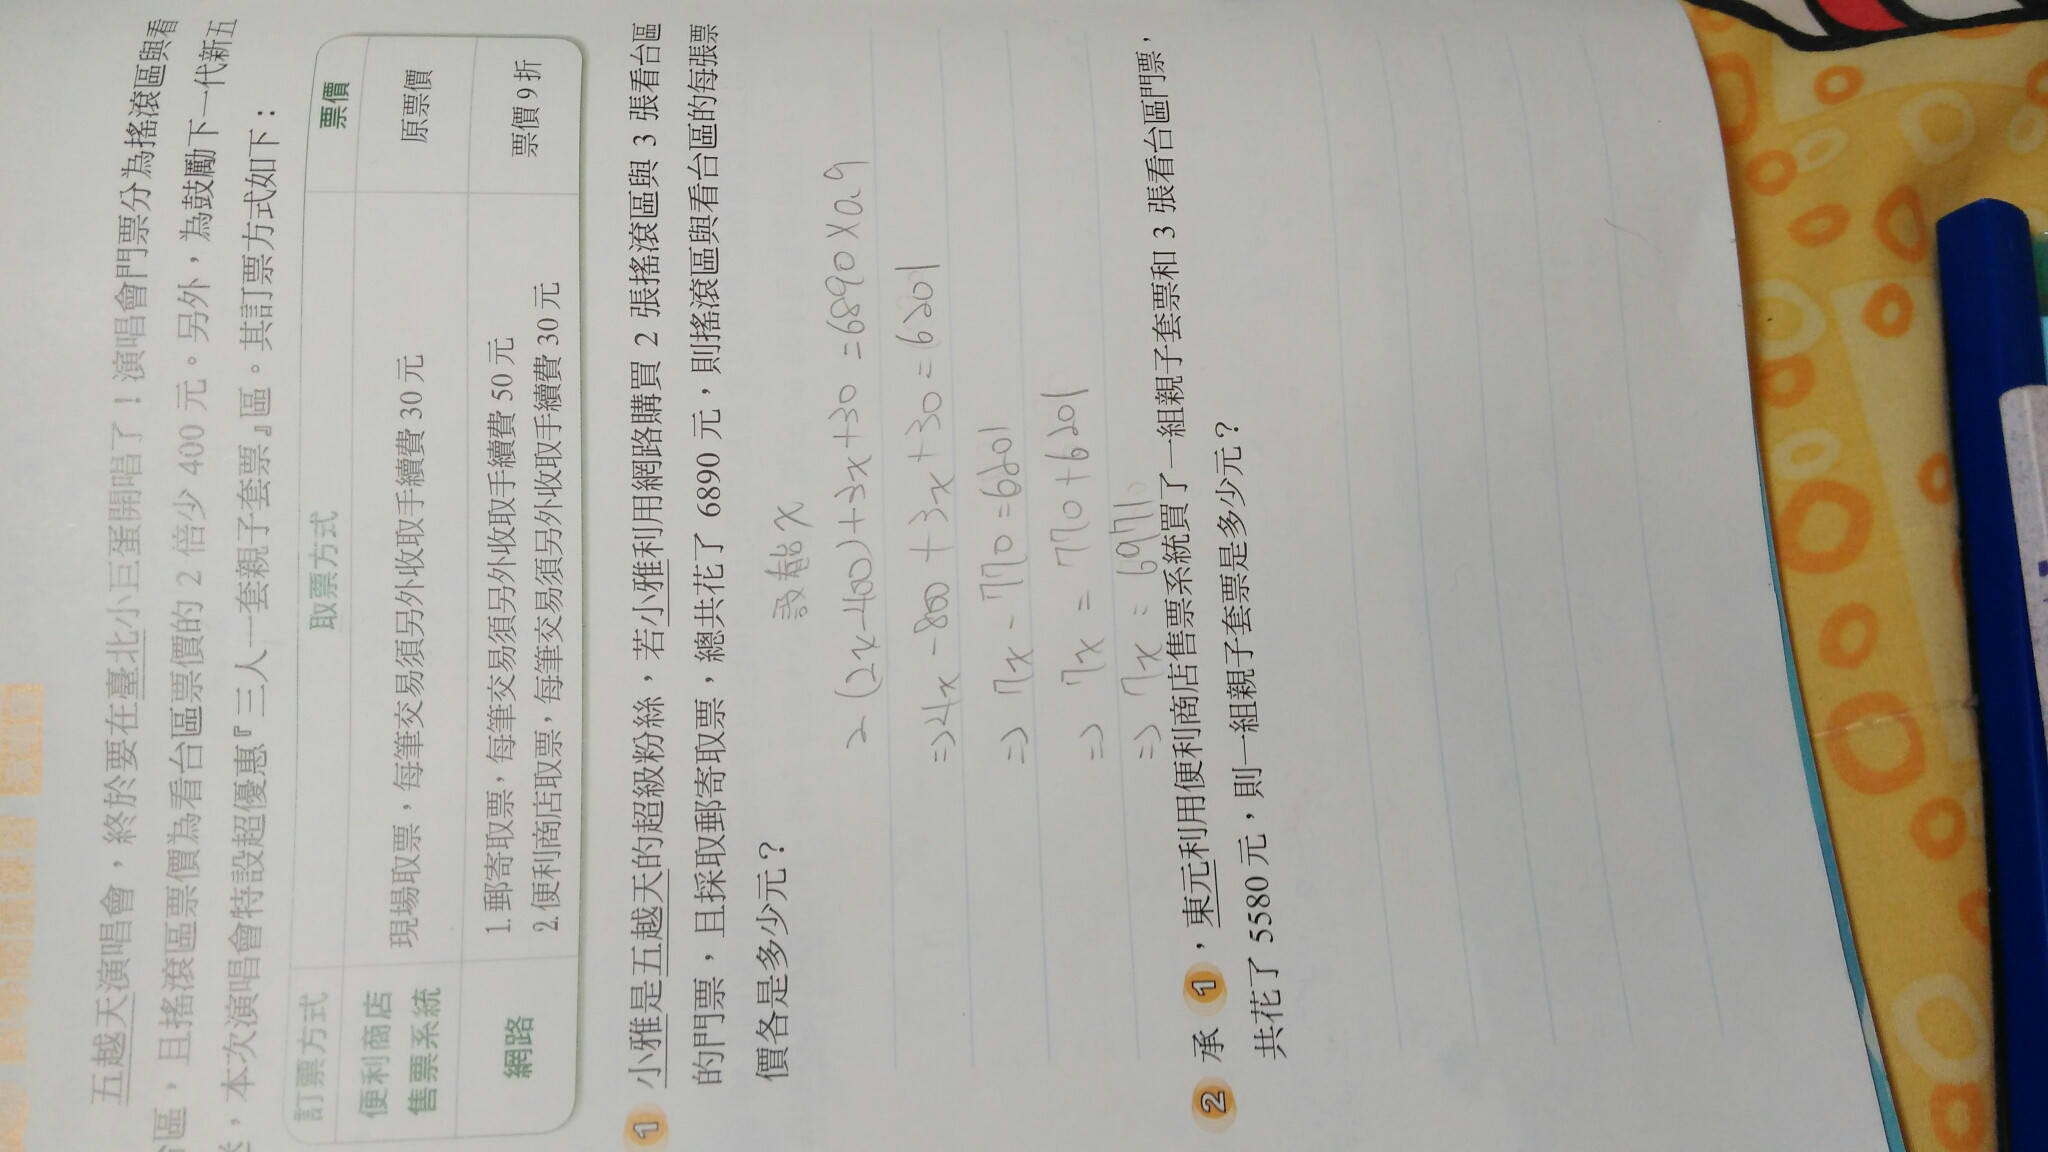 五越天演唱會，終於要在臺北小巨蛋開唱了！演唱會門票分為搖滾區與看
台區，且搖滾區票價為看台區票價的 2 倍少 400 元。另外，為鼓勵下一代新五
，本次演唱會特設超優惠『三人一套親子套票』區。其訂票方式如下：
訂票方式 取票方式 票價
便利商店
售票系統 現場取票，每筆交易須另外收取手續費 30 元 原票價
網路 1. 郵寄取票，每筆交易須另外收取手續費 50 元
2. 便利商店取票，每筆交易須另外收取手續費 30 元 票價 9 折
1 小雅是五越天的超級粉絲，若小雅利用網路購買 2 張搖滾區與 3 張看台區
的門票，且採取郵寄取票，總共花了 6890 元，則搖滾區與看台區的每張票
價各是多少元？
設看台x
2(2x-400)+3x+30=6890×0.9
⇒4x-800+3x+30=6201
⇒7x-770=6201
⇒7x=770+6201
⇒7x=6971
2 承 1，東元利用便利商店售票系統買了一組親子套票和 3 張看台區門票，
共花了 5580 元，則一組親子套票是多少元？